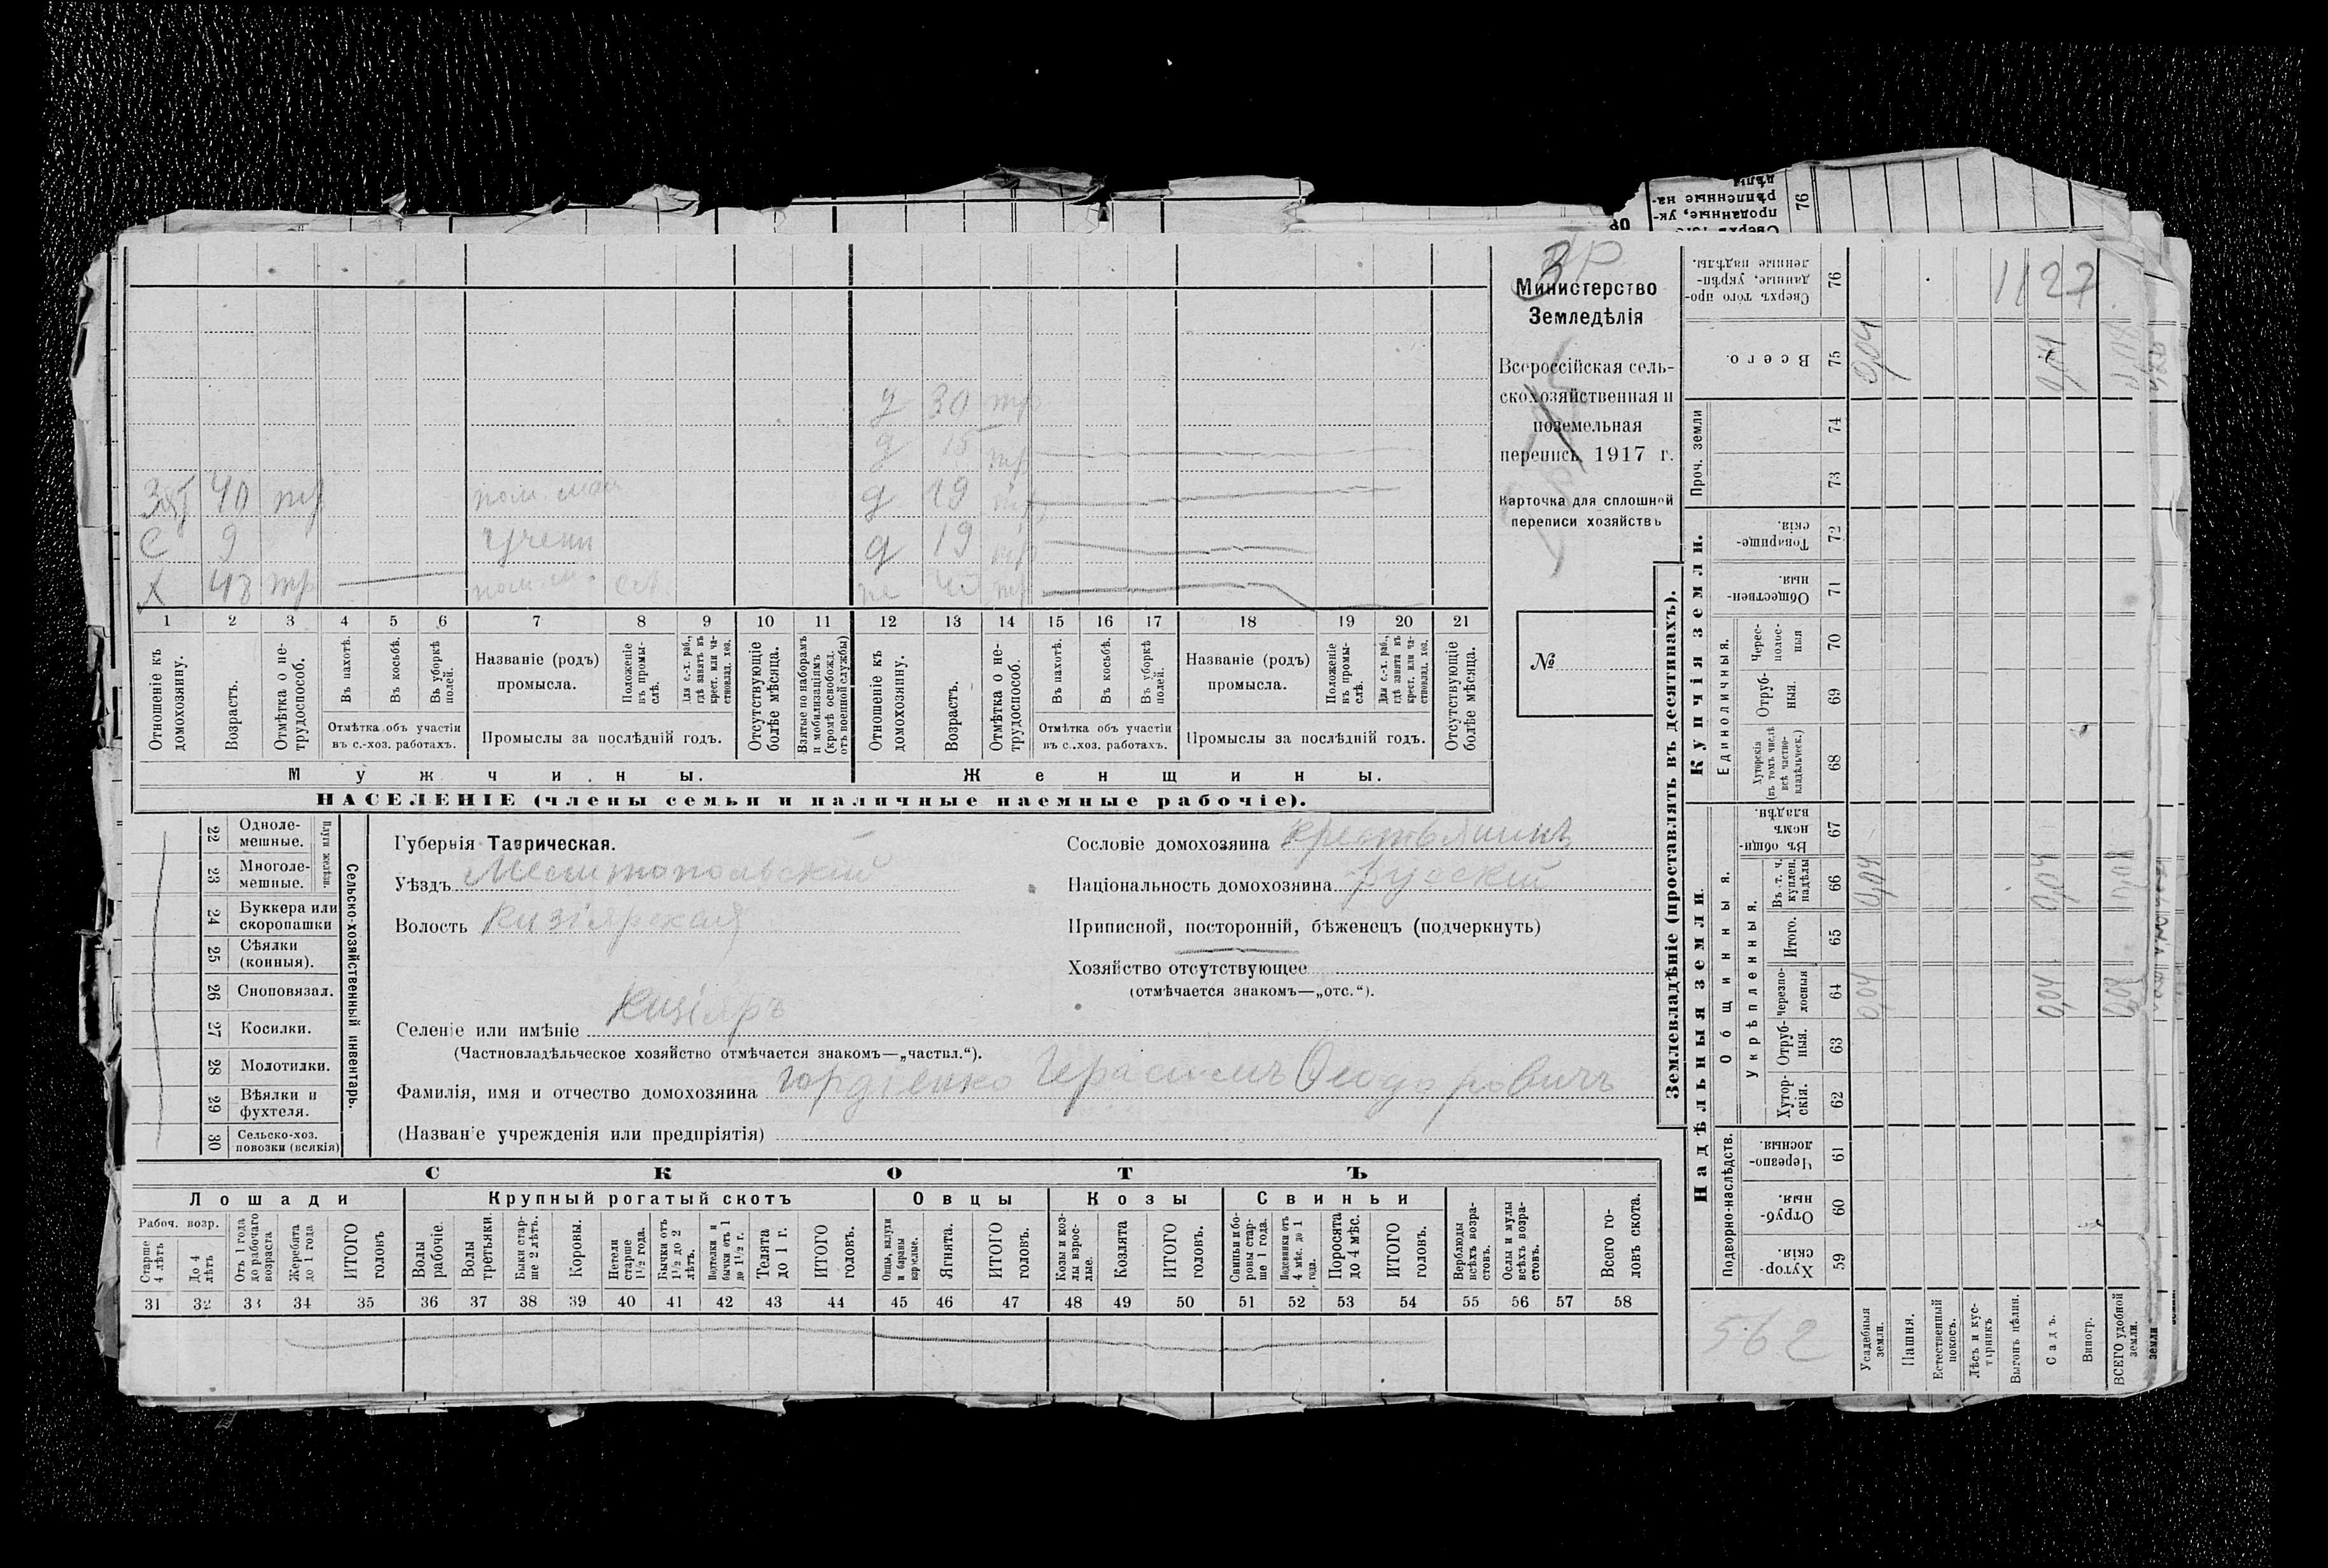 3
Министерство
Земледѣлія
Всероссійская сель-
скохозяйственная и
поземельная
перепись 1917 г.
Карточка для сплошной
переписи хозяйствъ
№
д 30 тр
д 15 тр
40 тр д 19 тр
С 9 учени д 19 тр
Х 48 тр тр
1 2 3 4 5 6 7 8 9 10 11 12 13 14 15 16 17 18 19 20 21
Отношеніе къ домохозяину.
Возрастъ.
Отмѣтка о не-трудоспособ.
Въ пахотѣ.
Въ косьбѣ.
Въ уборкѣ полей.
Отмѣтка объ участіи въ с.-хоз. работахъ.
Названіе (родъ) промысла.
Положеніе въ промы-слѣ.
Для с.-х. раб., гдѣ занятъ въ крест. или ча-стновлад. хоз.
Промыслы за послѣдній годъ.
Отсутствующіе болѣе мѣсяца.
Взятые по наборамъ и мобилизаціямъ (кромѣ освобожд. отъ военной службы)
Отношеніе къ домохозяину.
Возрастъ.
Отмѣтка о не-трудоспособ.
Въ пахотѣ.
Въ косьбѣ.
Въ уборкѣ полей.
Отмѣтка объ участіи въ с.-хоз. работахъ.
Названіе (родъ) промысла.
Положеніе въ промы-слѣ.
Для с.-х. раб., гдѣ занята въ крест. или ча-стновлад. хоз.
Промыслы за послѣдній годъ.
Отсутствующіе болѣе мѣсяца.
Мужчины. Женщины.
НАСЕЛЕНІЕ (члены семьи и наличные наемные рабочіе).
22 Одноле-мешные.
23 Многоле-мешные.
Плуги желѣзн.
24 Буккера или скоропашки
25 Сѣялки (конныя).
26 Сноповязал.
27 Косилки.
28 Молотилки.
29 Вѣялки и фухтеля.
30 Сельско-хоз. повозки (всякія)
Сельско-хозяйственный инвентарь.
Губернія Таврическая.
Уѣздъ Мелитопольскій
Волость Кизіярская
Сословіе домохозяина крестьянинъ
Національность домохозяина Русскій
Приписной, посторонній, бѣженецъ (подчеркнуть)
Хозяйство отсутствующее
(отмѣчается знакомъ—„отс.“).
Селеніе или имѣніе Кизіяръ
(Частновладѣльческое хозяйство отмѣчается знакомъ—„частвл.“).
Фамилія, имя и отчество домохозяина Гордіенко Герасимъ Ѳеодоровичъ
(Названіе учрежденія или предпріятія)
СКОТЪ
Лошади Крупный рогатый скотъ Овцы Козы Свиньи
Рабоч. возр.
Старше 4 лѣтъ
До 4 лѣтъ
Отъ 1 года до рабочаго возраста
Жеребята до 1 года
ИТОГО головъ
Волы рабочіе.
Волы третьяки.
Быки стар-ше 2 лѣтъ.
Коровы.
Нетели старше 1½ года.
Бычки отъ 1½ до 2 лѣтъ.
Подтелки и бычки отъ 1 до 1½ г.
Телята до 1 г.
ИТОГО головъ.
Овцы, валухи и бараны взрослые.
Ягнята.
ИТОГО головъ.
Козы и коз-лы взрос-лые.
Козлята
ИТОГО головъ.
Свиньи и бо-ровы стар-ше 1 года.
Подсвинки отъ 4 мѣс. до 1 года.
Поросята до 4 мѣс.
ИТОГО головъ.
Верблюды всѣхъ возра-стовъ.
Ослы и мулы всѣхъ возра-стовъ.
Всего го-ловъ скота.
31 32 33 34 35 36 37 38 39 40 41 42 43 44 45 46 47 48 49 50 51 52 53 54 55 56 57 58
Землевладѣніе (проставлять въ десятинахъ).
Надѣльныя земли. Купчія земли. Проч. земли
Подворно-наслѣдств.
Общинныя.
Укрѣпленныя.
Единоличныя.
Хутор-скія. 59
Отруб-ныя. 60
Черезпо-лосныя. 61
Хутор-скія. 62
Отруб-ныя. 63
Черезпо-лосныя 64
Итого. 65
Въ т. ч. куплен. надѣлы 66
Въ общи-номъ владѣн. 67
Хуторскія (въ томъ числѣ всѣ частно-владѣльческ.) 68
Отруб-ныя. 69
Черес-полос-ныя 70
Обществен-ныя. 71
Товарище-скія. 72
73
74
Всего. 75
Сверхъ того про-данные, укрѣп-ленные надѣлы. 76
Усадебныя земли. 0,04 0,04 0,04
Пашня.
Естественный покосъ.
Лѣсъ и кус-тарникъ
Выгонъ цѣлин.
Садъ. 0,04 0,04 0,04
Виногр.
ВСЕГО удобной земли.
1127
562
76